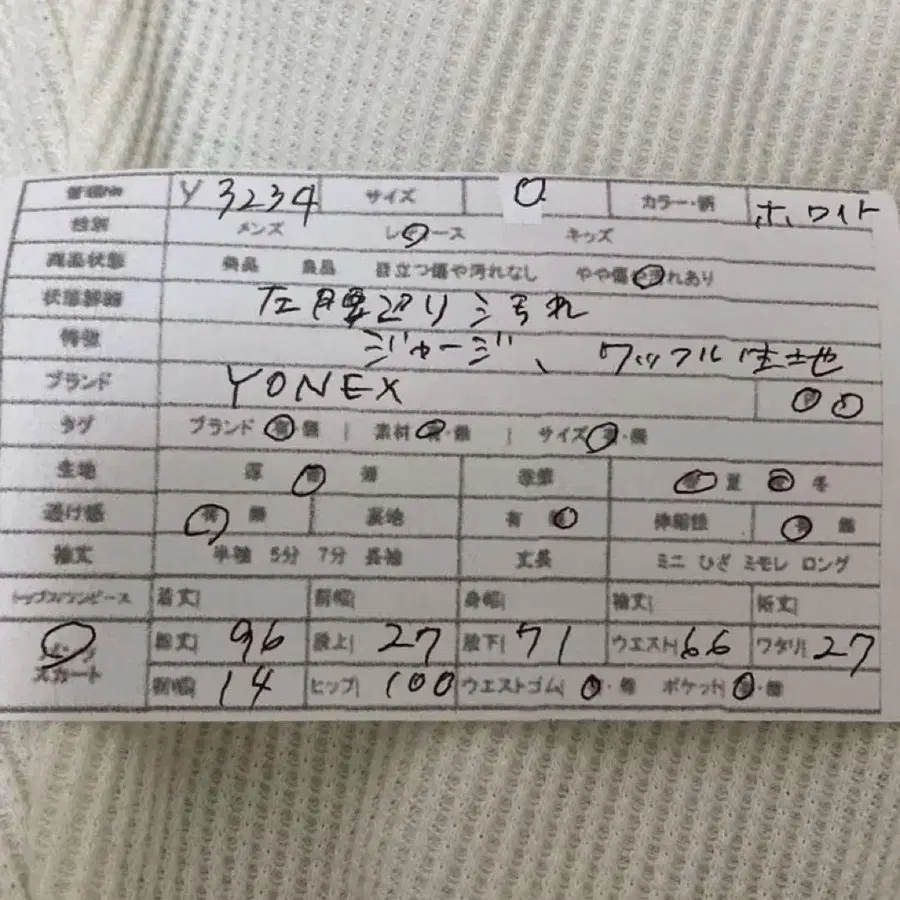 管理No Y 3234 サイズ O カラー・柄 ホワイト
性別 メンズ レディース キッズ
商品状態 美品 良品 目立つ傷や汚れなし やや傷や汚れあり
状態詳細 左腰辺り汚れ
特徴 ジャージ、ワッフル生地
ブランド YONEX
タグ ブランド 有・無 | 素材 有・無 | サイズ 有・無
生地 厚 普 薄 季節 春 夏 秋 冬
透け感 有 無 裏地 有 無 伸縮性 有 無
袖丈 半袖 5分 7分 長袖 丈長 ミニ ひざ ミモレ ロング
トップス/ワンピース 着丈| 肩幅| 身幅| 袖丈| 裄丈|
総丈| 96 股上| 27 股下| 71 ウエスト| 66 ワタリ| 27
スカート 裾幅| 14 ヒップ| 100 ウエストゴム| 有・無 ポケット| 有・無